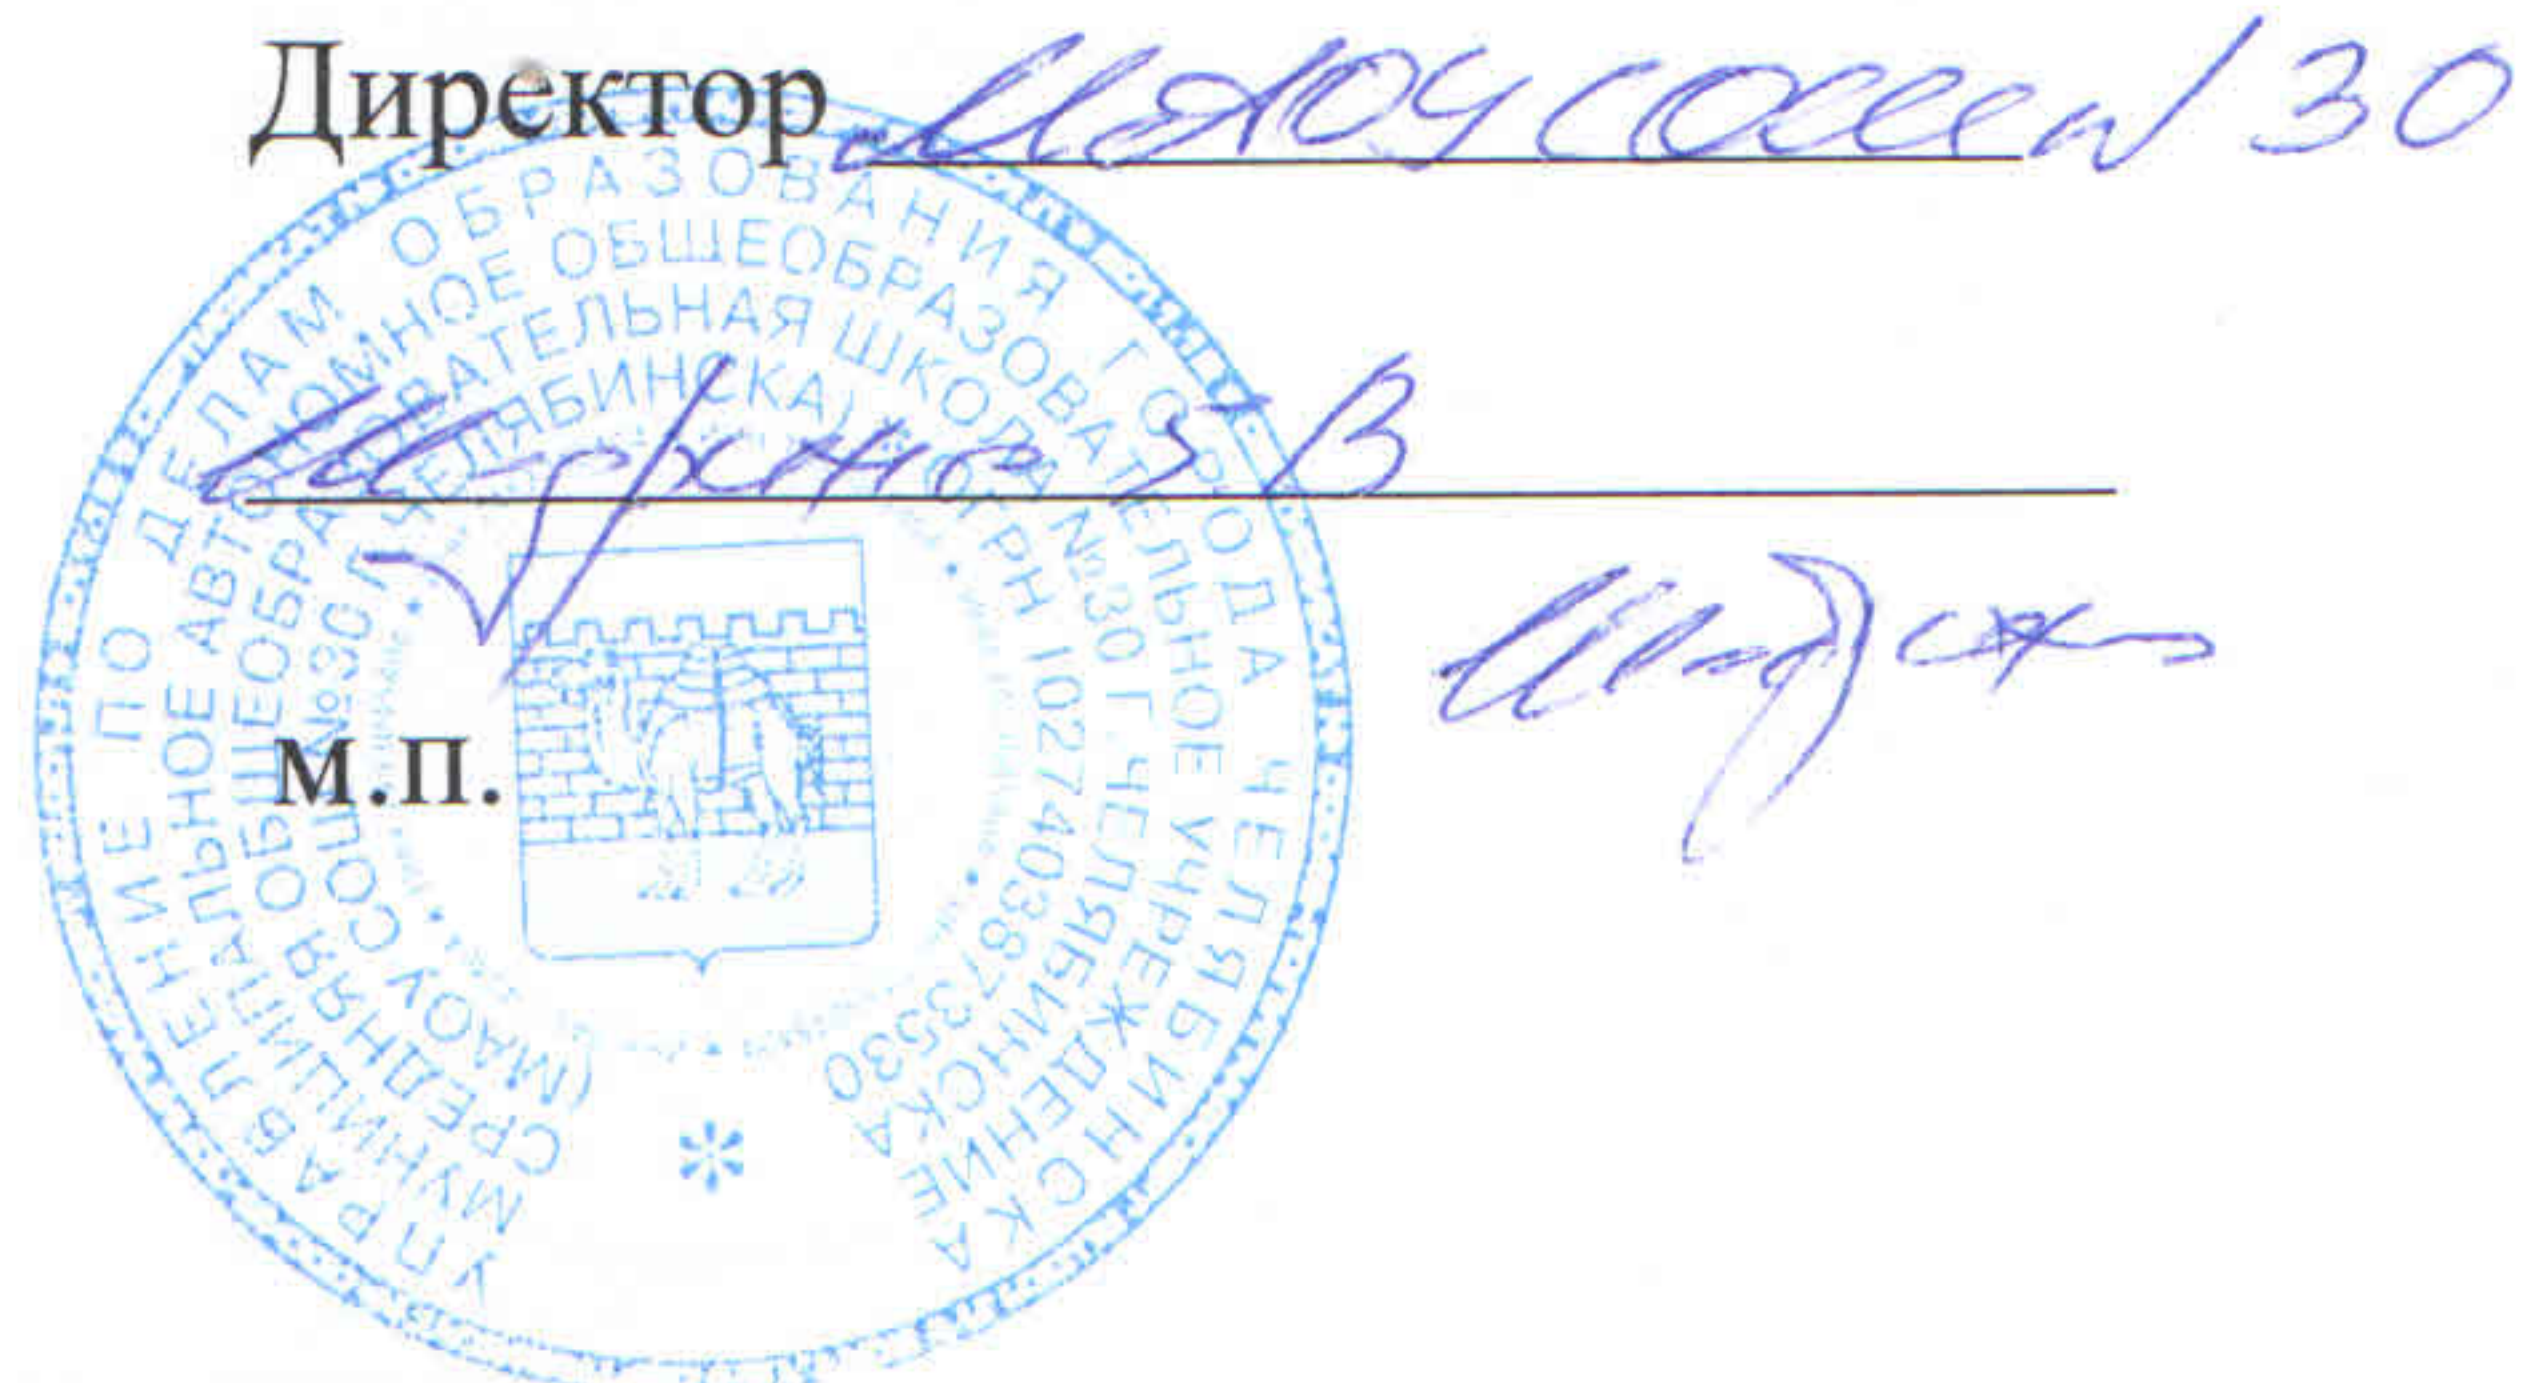 Директор МАОУ СОШ N 30
В
М.П.
УПРАВЛЕНИЕ ПО ДЕЛАМ ОБРАЗОВАНИЯ ГОРОДА ЧЕЛЯБИНСКА
МУНИЦИПАЛЬНОЕ АВТОНОМНОЕ ОБЩЕОБРАЗОВАТЕЛЬНОЕ УЧРЕЖДЕНИЕ
СРЕДНЯЯ ОБЩЕОБРАЗОВАТЕЛЬНАЯ ШКОЛА №30 Г. ЧЕЛЯБИНСКА
(МАОУ СОШ №30 Г. ЧЕЛЯБИНСКА) ОГРН 1027403873530